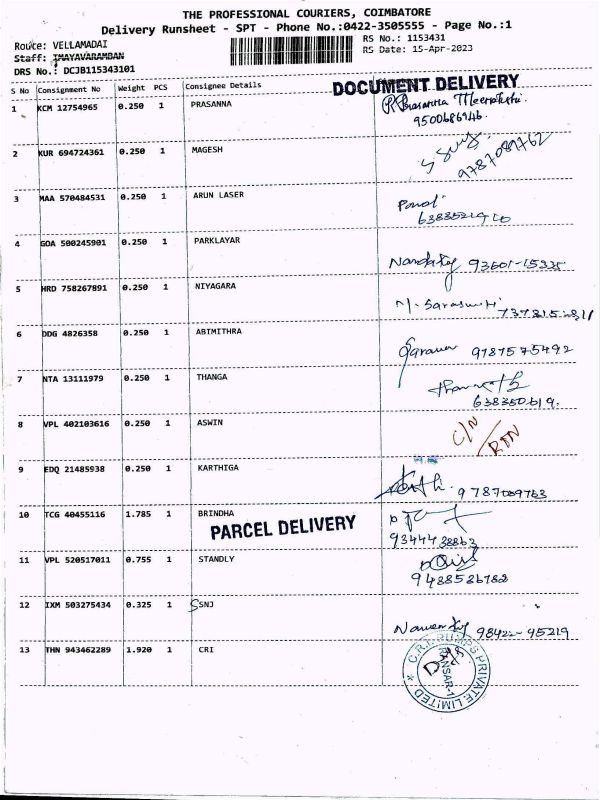 THE PROFESSIONAL COURIERS, COIMBATORE
Delivery Runsheet - SPT - Phone No.:0422-3505555 - Page No.:1
Route: VELLAMADAI
RS No.: 1153431
Staff: IMAYAVARAMBAN
RS Date: 15-Apr-2023
DRS No.: DCJB115343101
S No Consignment No Weight PCS Consignee Details
DOCUMENT DELIVERY
1 KCM 12754965 0.250 1 PRASANNA
9500686946
2 KUR 694724361 0.250 1 MAGESH
9787089762
3 MAA 570484531 0.250 1 ARUN LASER
4 GOA 500245901 0.250 1 PARKLAYAR
93601-15335
5 HRD 758267891 0.250 1 NIYAGARA
M. Saraswathi
6 DDG 4826358 0.250 1 ABIMITHRA
Saravan 9787575492
7 NTA 13111979 0.250 1 THANGA
8 VPL 402103616 0.250 1 ASWIN
C/N
RTN
9 EDQ 21485938 0.250 1 KARTHIGA
9787089763
10 TCG 40455116 1.785 1 BRINDHA
PARCEL DELIVERY
9344438863
11 VPL 520517011 0.755 1 STANDLY
9488536782
12 IXM 503275434 0.325 1 SSNJ
98422-45219
13 THN 943462289 1.920 1 CRI
C.R.I. PUMPS PRIVATE LIMITED